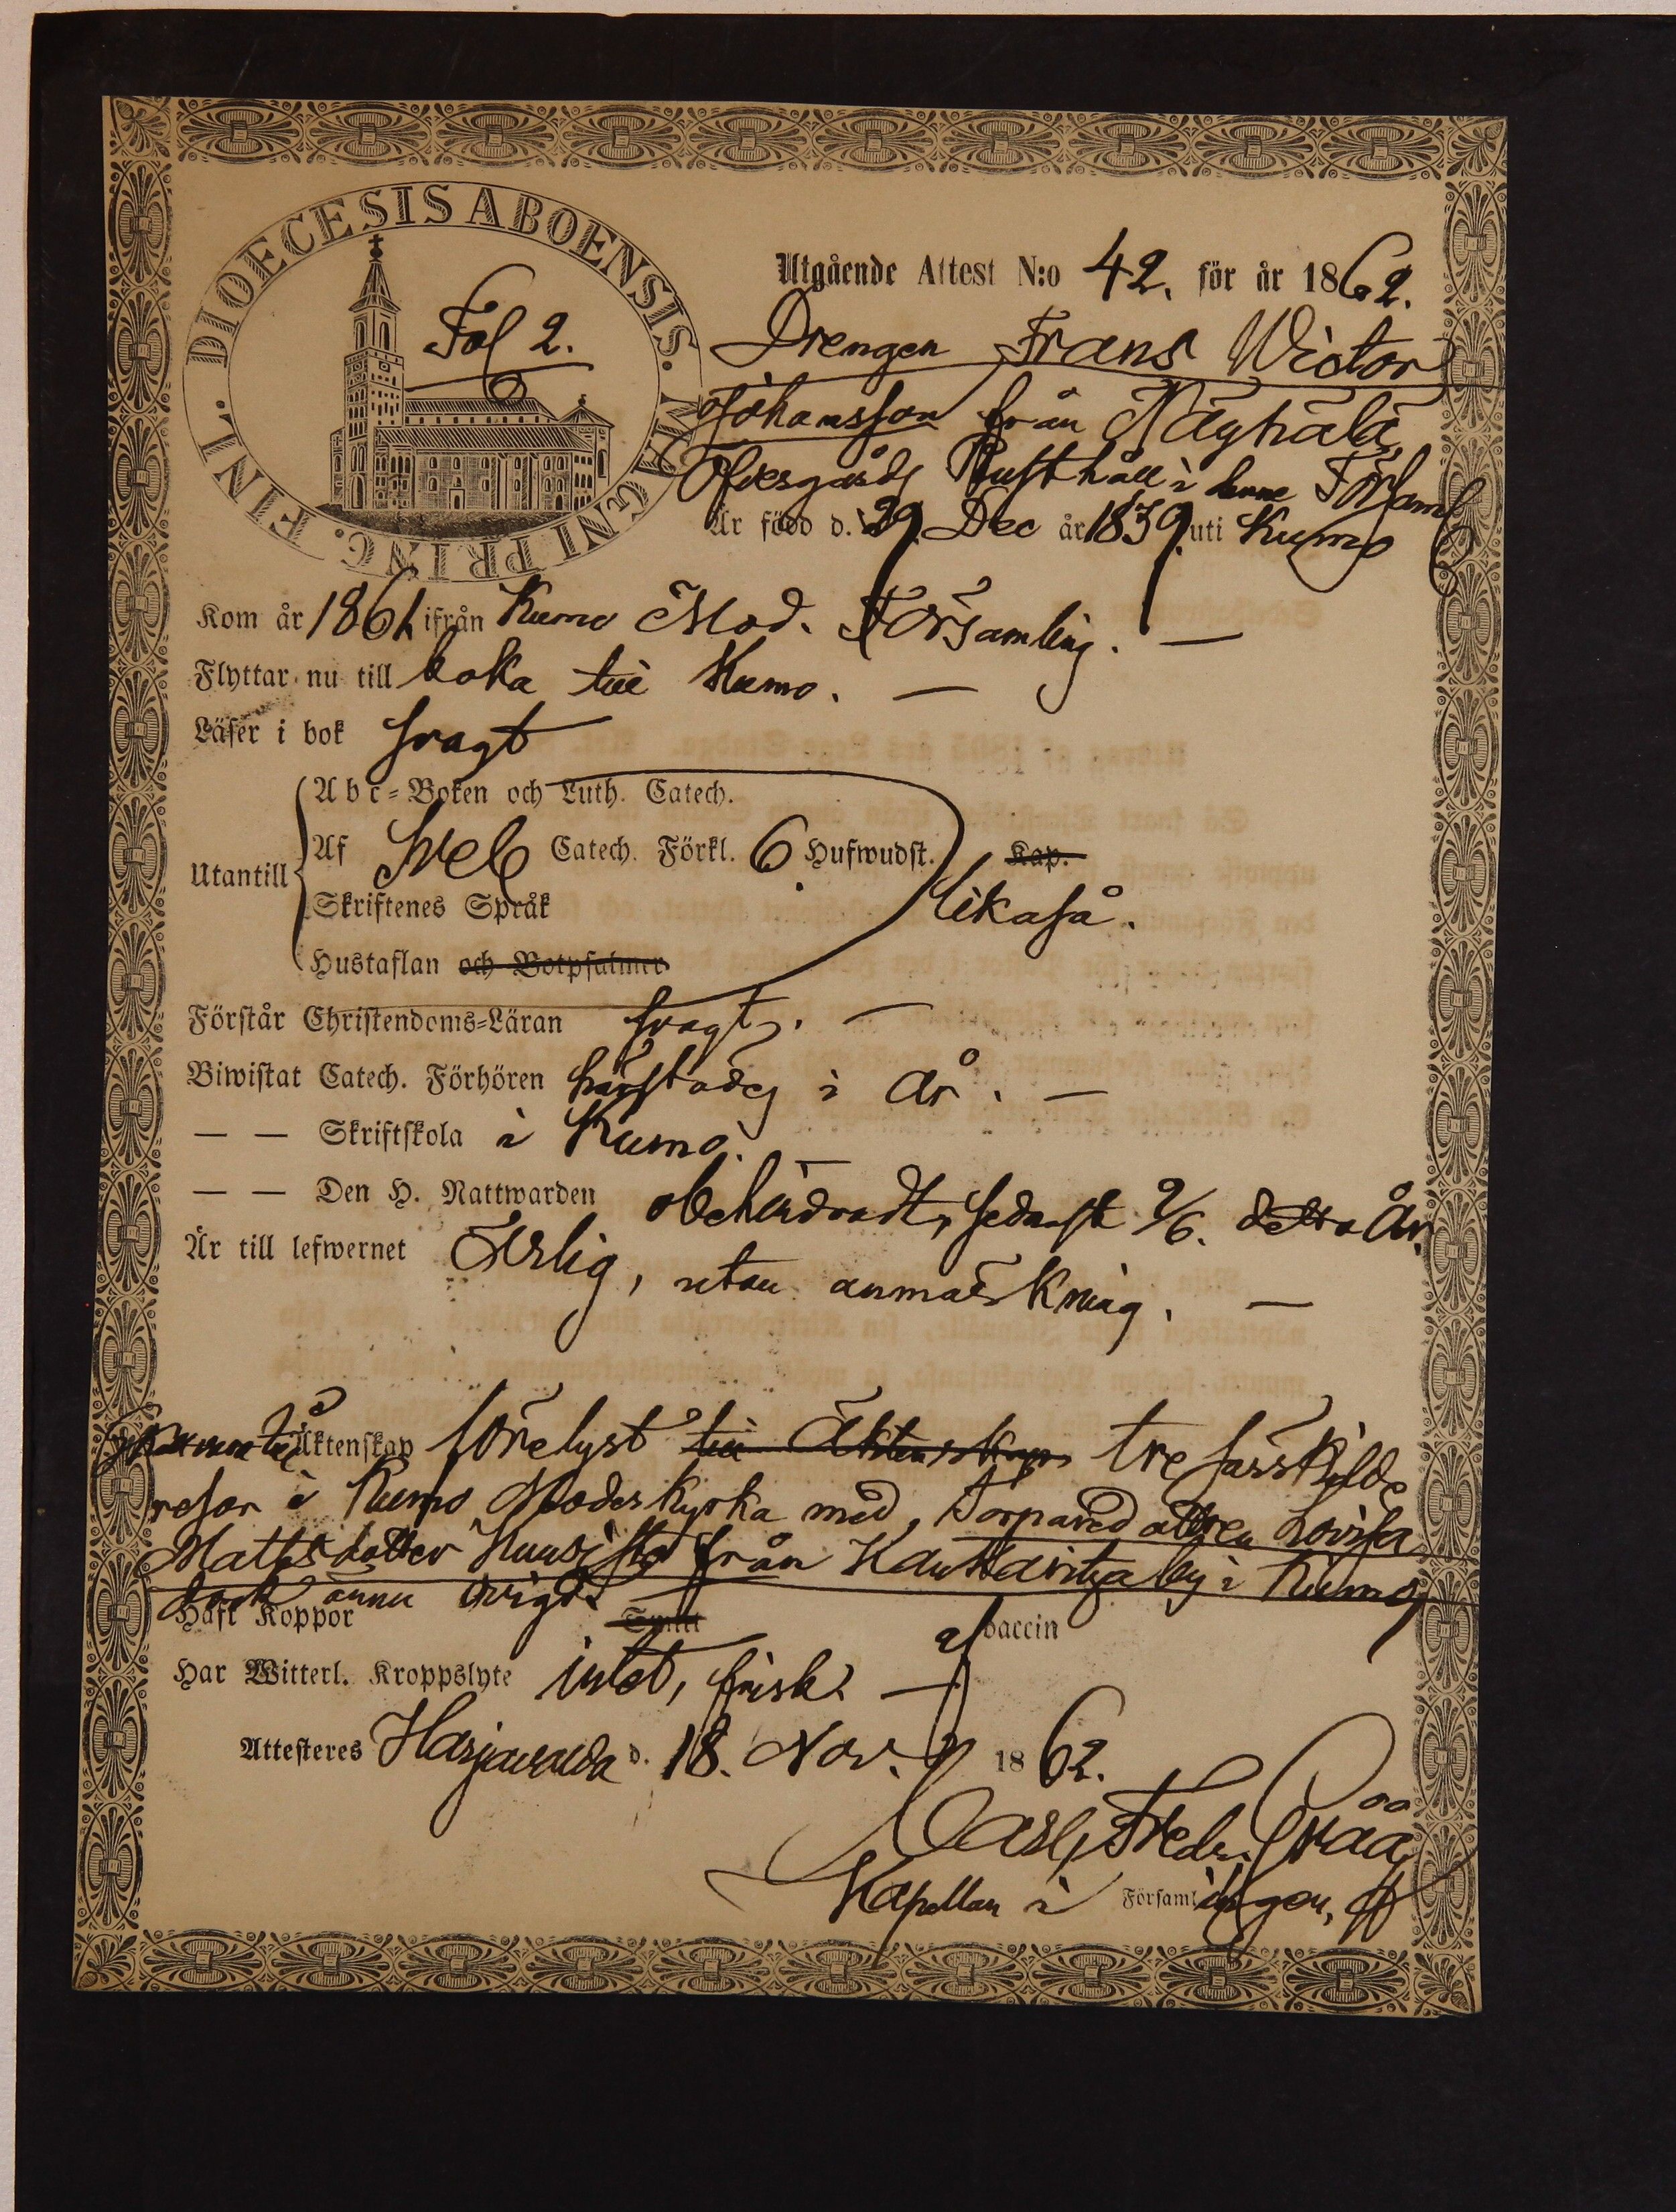 DIOECESIS ABOENSIS. MAGNI PRINC. FINL.
Fol 2.
Utgående Attest N:o 42. för år 1862.
Drengen Frans Wictor
Johansson från
Öfvergårds Rusthåll i denne Församl
Är född d. 29 Dec år 1839. uti Kumo
Kom år 1861 ifrån Kumo Mod. Församling. —
Flyttar nu till baka till Kumo. —
Läser i bok svagt
Abc-Boken och Luth. Catech.
Utantill Af Sveb Catech. Förkl. 6 Hufwudst. Kap.
Skriftenes Språk likaså.
Hustaflan och Botpsalmer
Förstår Christendoms-Läran svagt. —
Biwistat Catech. Förhören i år. —
— — Skriftskola i Kumo. —
— — Den H. Nattwarden obehindradt, sednast 9/6. detta år.
Är till lefwernet Ärlig, utan anmärkning. —
Äktenskap förelyst till Äktenskap tre särskilde
resor i Kumo Moderkyrka med Torparedottren Lovisa
Mattsdotter från by i Kumo,
dock ännu ovigd.
Haft Koppor vaccin
Har Witterl. Kroppslyte intet, frisk. —
Attesteres Harjavalda d. 18. Nov. 1862.
Carl Fredr.
Kapellan i Församlingen.